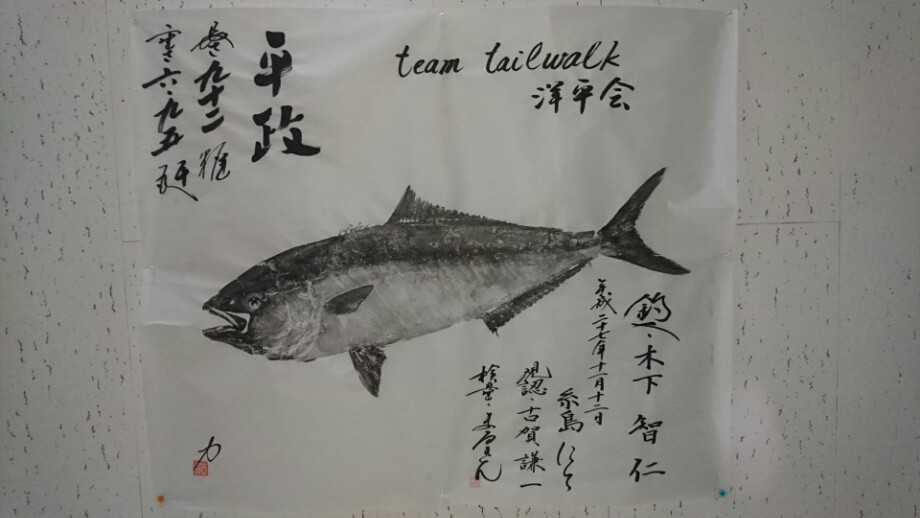 team tailwalk
洋平会
平政
長・九十二糎
重・六・九五瓩
釣人・木下智仁
平成二十七年十一月十二日
糸島にて
現認・古賀謙一
検量・
力